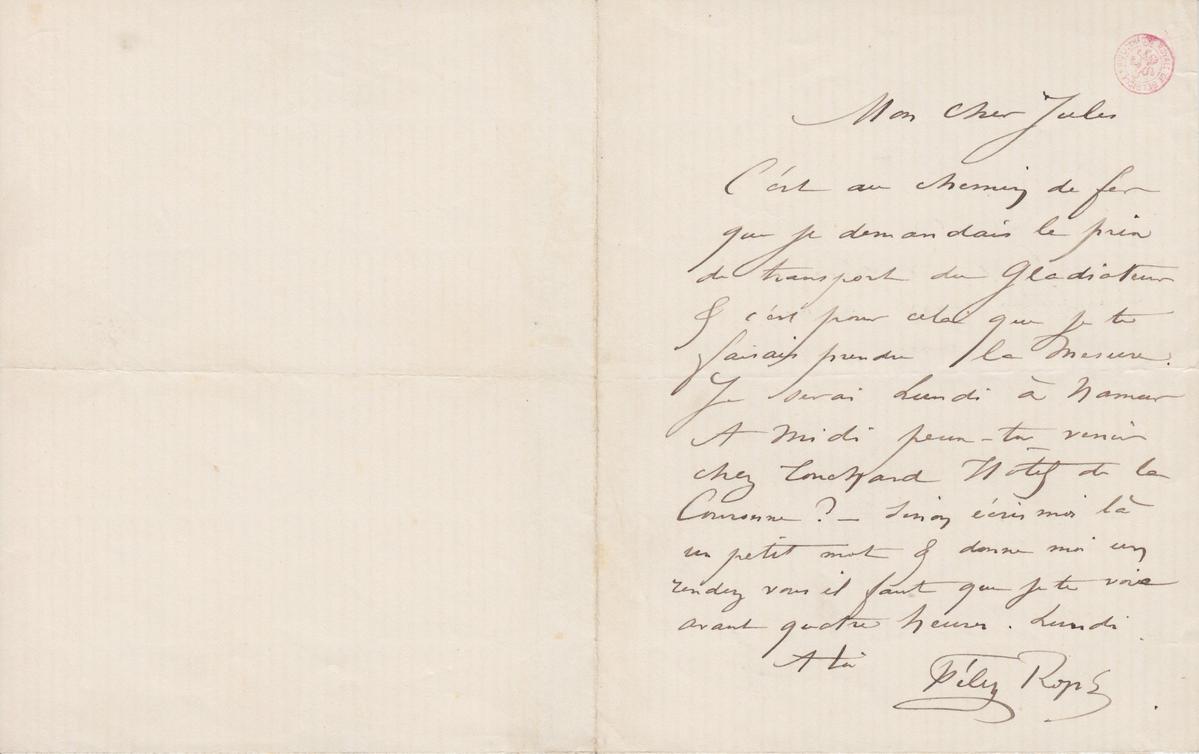 Mon cher Jules
C'est au chemin de fer
que je demandais le prix
de transport du Gladiateur
& c'est pour cela que je te
faisais prendre la mesure.
Je serai Lundi à Namur
A Midi peux-tu venir
chez Touchard Hôtel de la
Couronne ? – Sinon écris moi là
un petit mot & donne moi un
rendez vous il faut que je te voie
avant quatre heures. Lundi.
A toi
Félix Rops